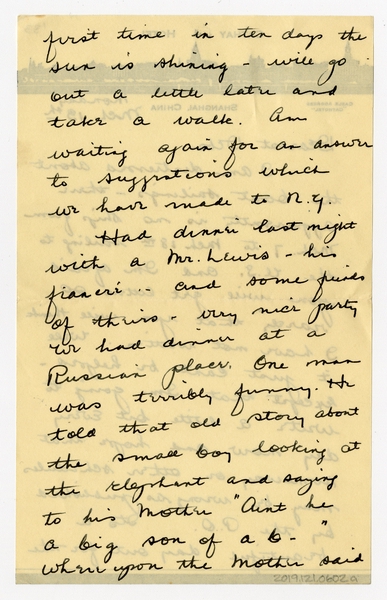 first time in ten days the
sun is shining – will go
out a little later and
take a walk. Am
waiting again for an answer
to suggestions which
we have made to N.Y.
Had dinner last night
with a Mr. Lewis – his
fiancé – and some friends
of theirs – very nice party
we had dinner at a
Russian place. One man
was terribly funny. He
told that old story about
the small boy looking at
the elephant and saying
to his Mother "Aint he
a big son of a b- "
whereupon the Mother said
2019.121.0602a